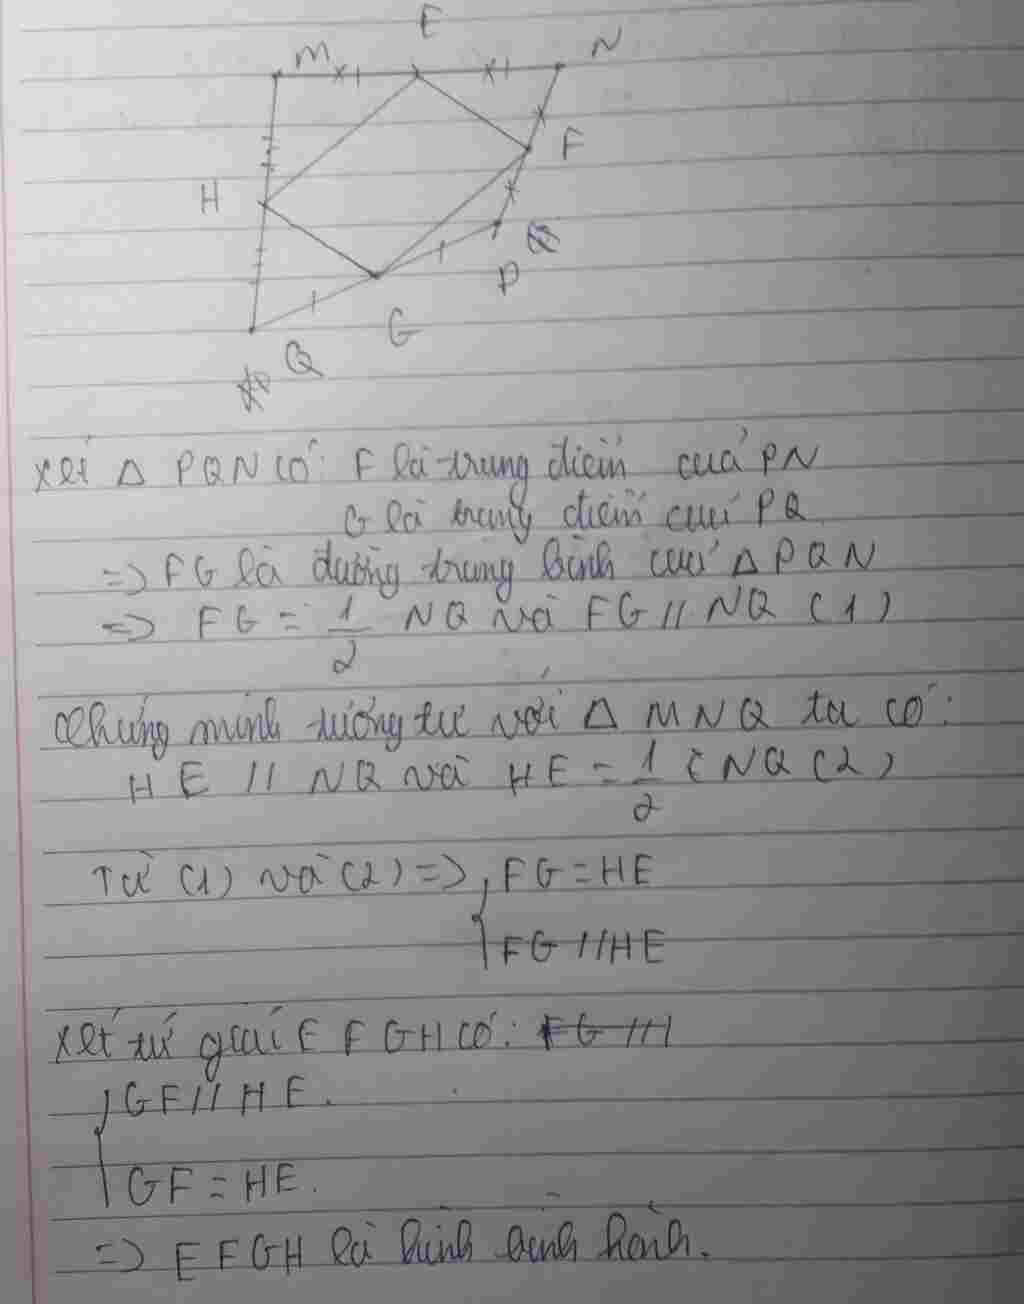 E
M
N
F
H
P
G
Q
Xét Δ PQN có: F là trung điểm của PN
G là trung điểm của PQ
=> FG là đường trung bình của Δ PQN
=> FG = 1/2 NQ và FG // NQ (1)
Chứng minh tương tự với Δ MNQ ta có:
HE // NQ và HE = 1/2 NQ (2)
Từ (1) và (2) => { FG = HE
FG // HE
Xét tứ giác EFGH có: FG // H
{ GF // HE.
GF = HE.
=> EFGH là hình bình hành.